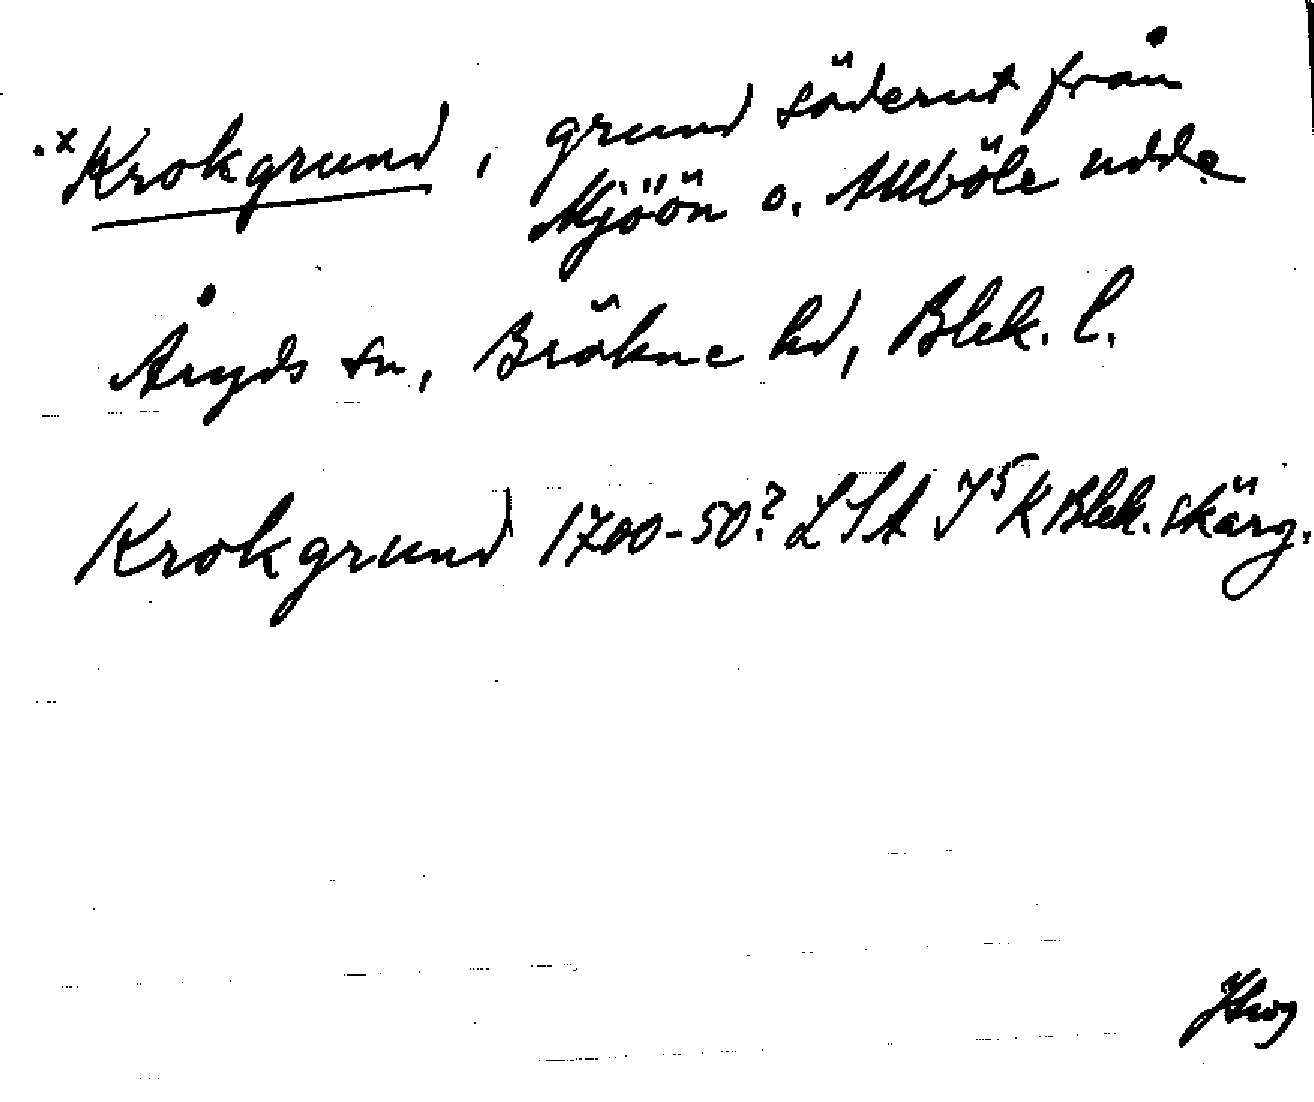 .x Krokgrund, grund söderut från
Mjöön o. Allböle udde
Åryds sn, Bräkne hd, Blek. l.
Krokgrund 1700-50? LSA I⁵K Blek. skärg.